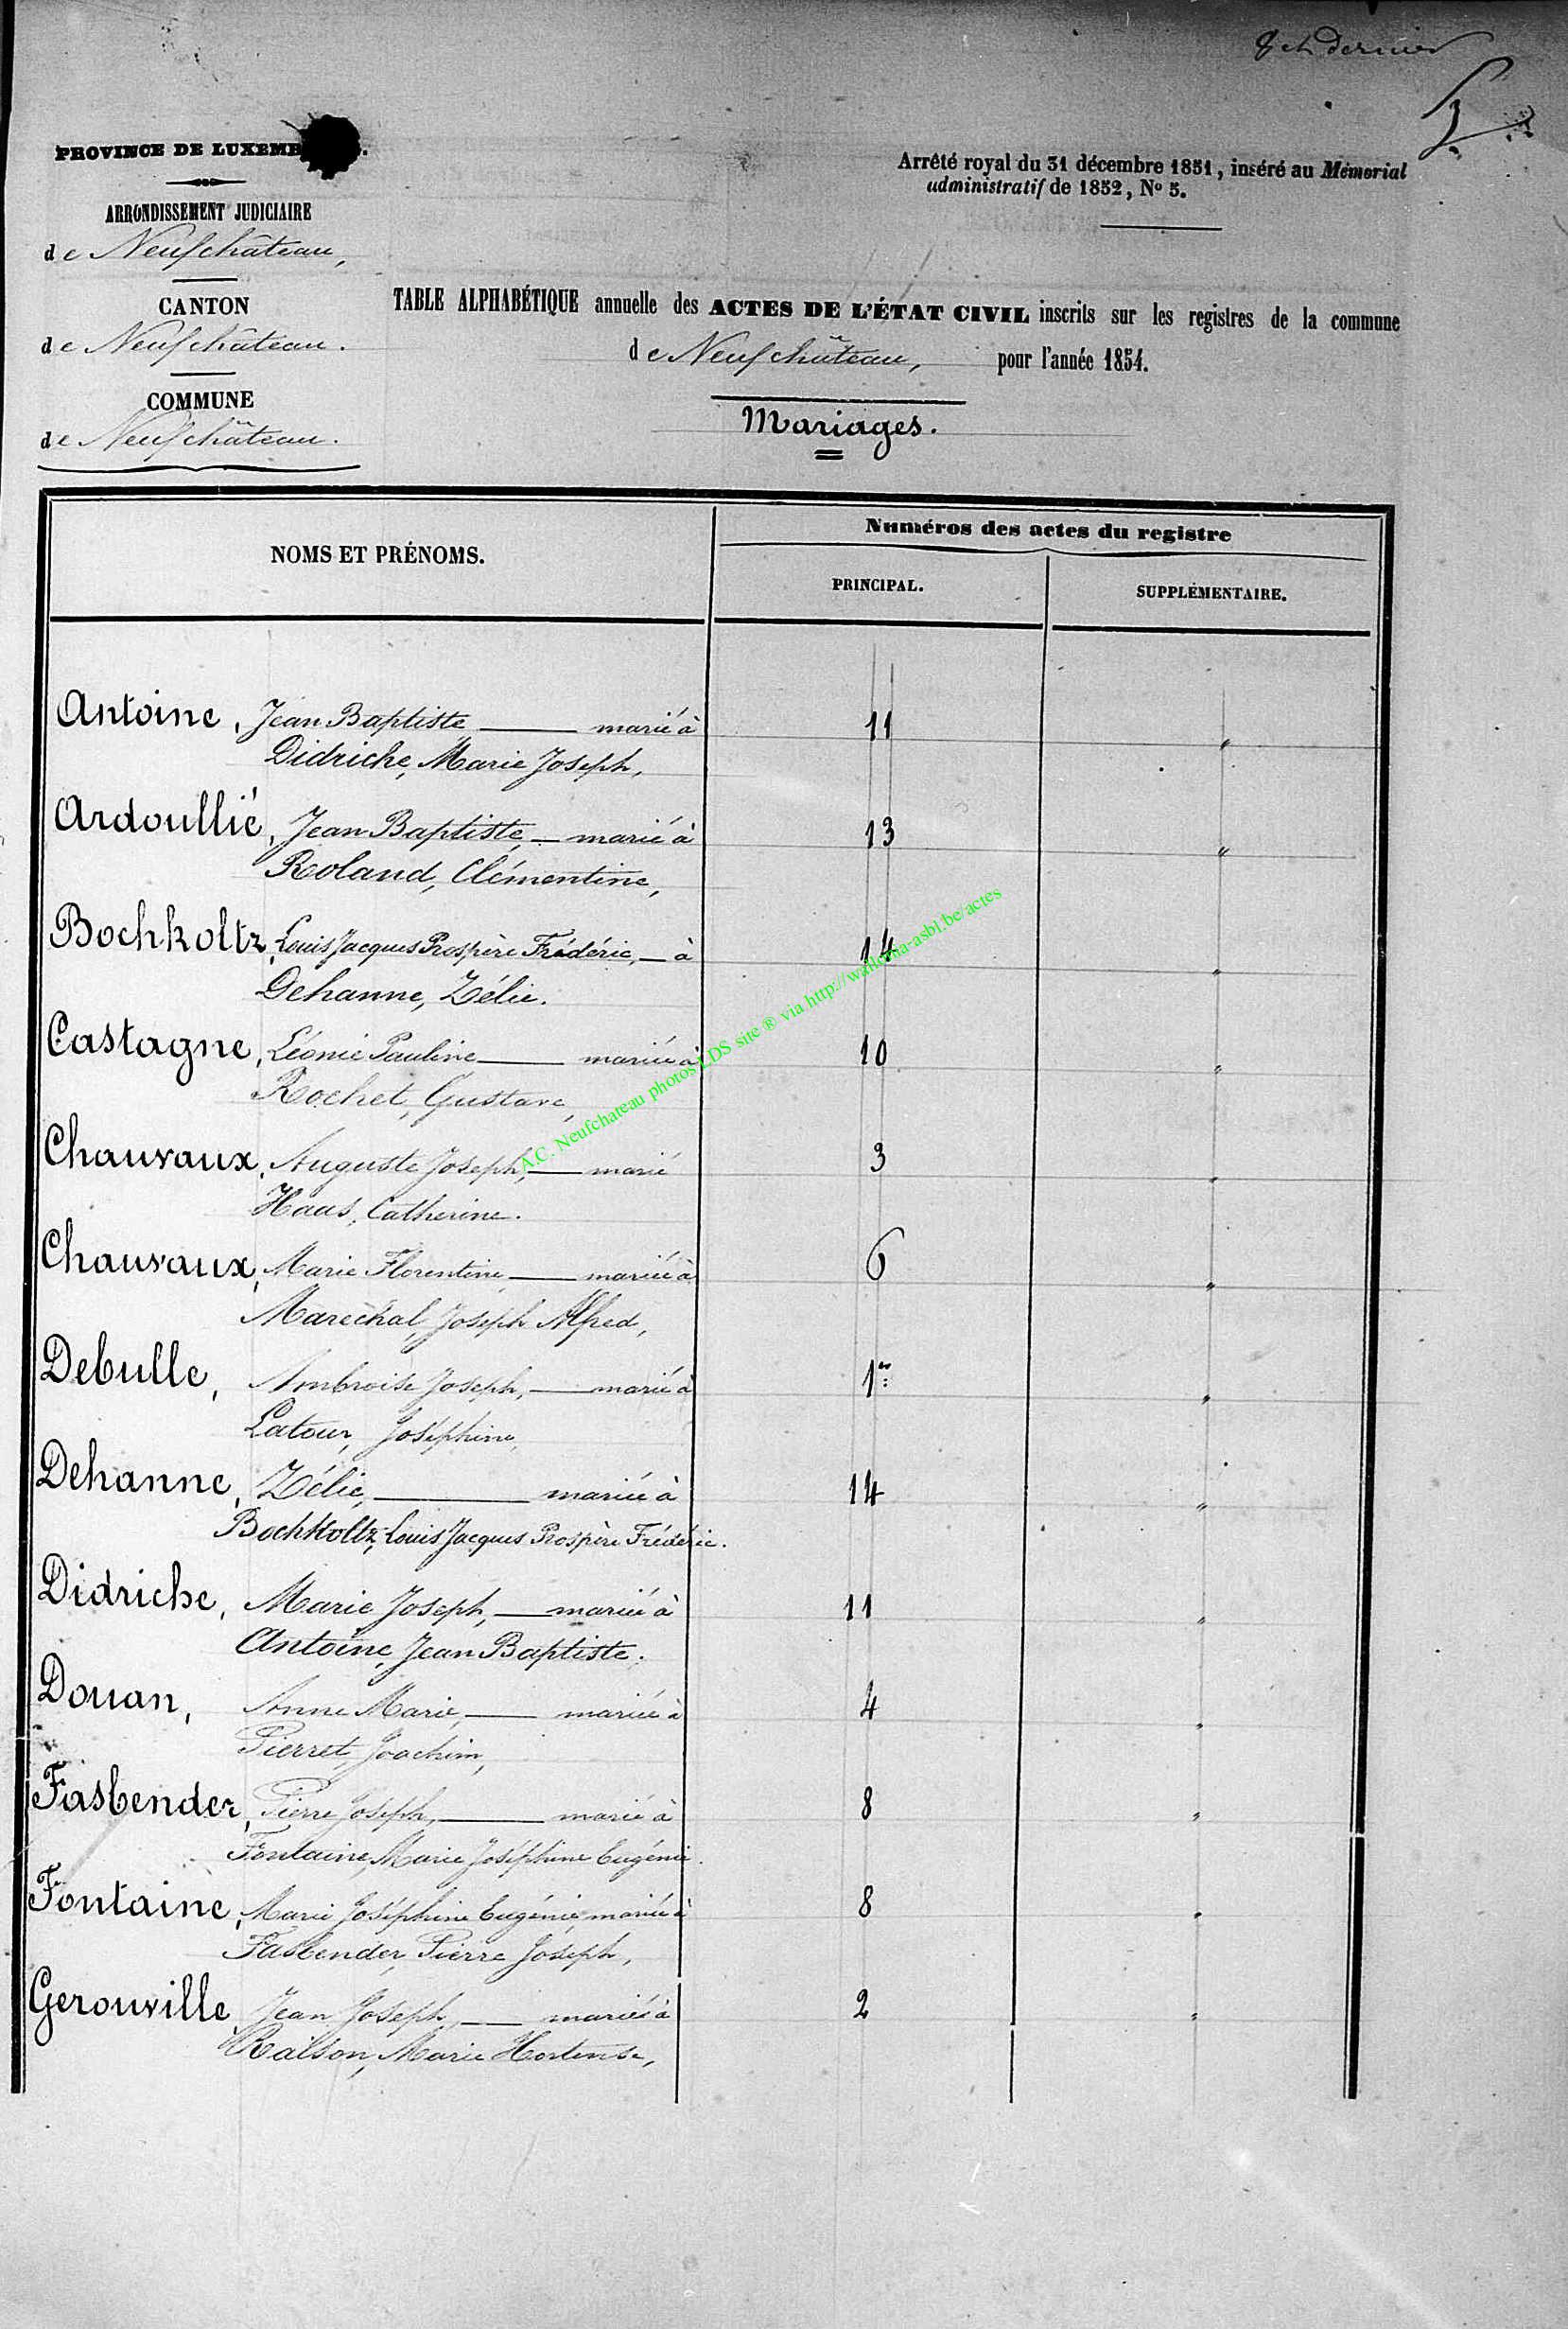 8 et dernier
PROVINCE DE LUXEMB
ARRONDISSEMENT JUDICIAIRE
de Neufchâteau,
CANTON
de Neufchâteau.
COMMUNE
de Neufchâteau.
Arrêté royal du 31 décembre 1851, inséré au Mémorial
administratif de 1852, No 5.
TABLE ALPHABÉTIQUE annuelle des ACTES DE L'ÉTAT CIVIL inscrits sur les registres de la commune
de Neufchâteau, pour l'année 1854.
Mariages.
NOMS ET PRÉNOMS.
Numéros des actes du registre
PRINCIPAL.
SUPPLÉMENTAIRE.
Antoine, Jean Baptiste — marié à 11 "
Didriche, Marie Joseph,
Ardoullié, Jean Baptiste, — marié à 13 "
Roland, Clémentine,
Bochkoltz, Louis Jacques Prospère Frédéric, — à 14 "
Dehanne, Zélie.
Castagne, Léonie Pauline — mariée à 10 "
Rochet, Gustave,
Chauvaux, Auguste Joseph, — marié 3 "
Haas, Catherine.
Chauvaux, Marie Florentine, — mariée à 6 "
Maréchal, Joseph Alfred,
Debulle, Ambroise Joseph, — marié à 1er "
Latour, Joséphine,
Dehanne, Zélie, — mariée à 14 "
Bochkoltz, Louis Jacques Prospère Frédéric.
Didriche, Marie Joseph, — mariée à 11 "
Antoine, Jean Baptiste.
Douan, Anne Marie, — mariée à 4 "
Pierret, Joachim,
Fasbender, Pierre Joseph, — marié à 8 "
Fontaine, Marie Joséphine Eugénie.
Fontaine, Marie Joséphine Eugénie, mariée à 8 "
Fasbender, Pierre Joseph,
Gerouville, Jean Joseph, — mariés à 2 "
Ralson, Marie Hortense,
A.C. Neufchateau photos LDS site ® via http://wallonia-asbl.be/actes